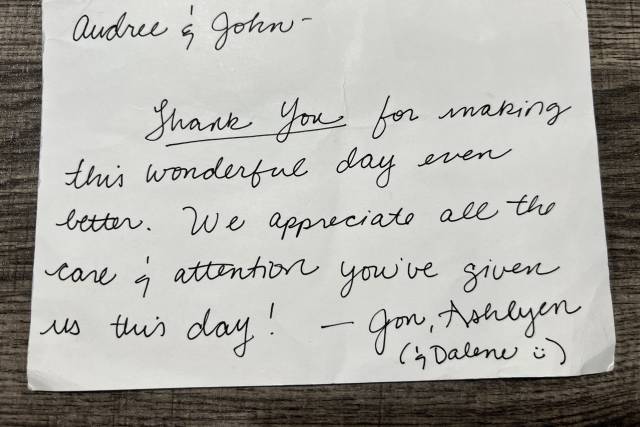 Audree & John-
Thank You for making
this wonderful day even
better. We appreciate all the
care & attention you've given
us this day! — Jon, Ashlyen
(& Dalene :))